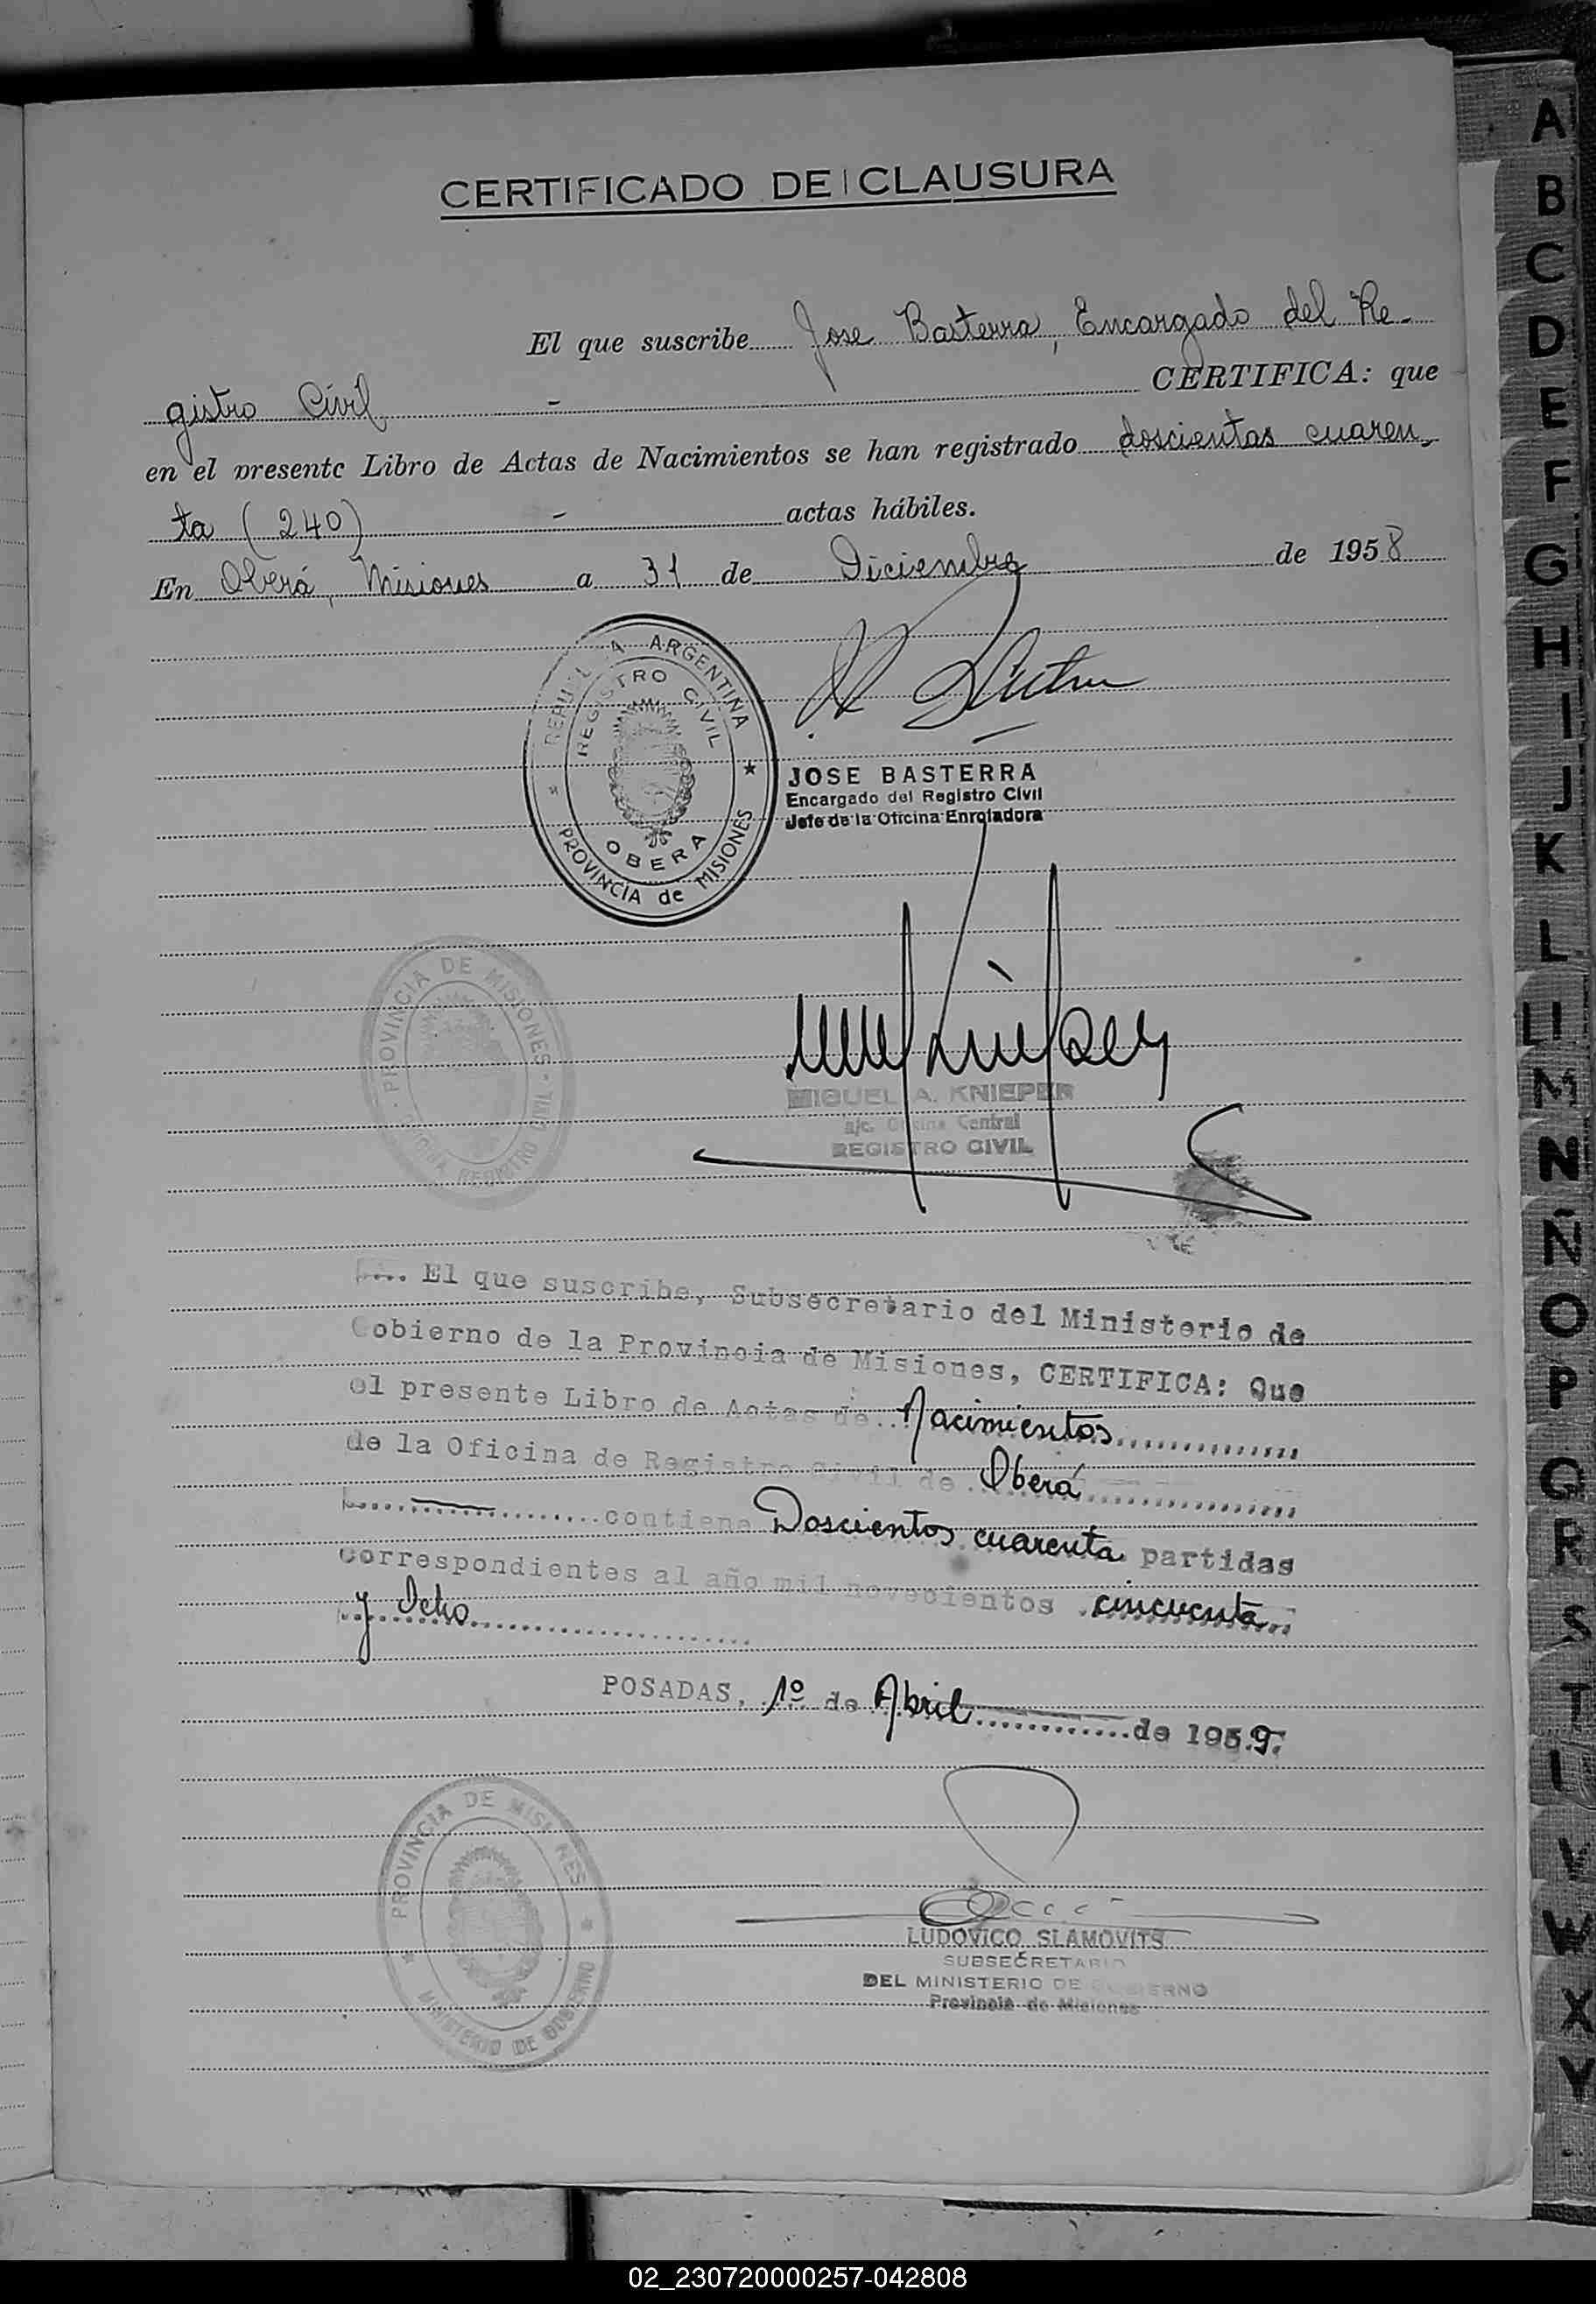 CERTIFICADO DE CLAUSURA
El que suscribe Jose Basterra, Encargado del Re-
gistro Civil - CERTIFICA: que
en el presente Libro de Actas de Nacimientos se han registrado doscientas cuaren-
ta (240) - actas hábiles.
En Oberá, Misiones a 31 de Diciembre de 1958
REPUBLICA ARGENTINA
REGISTRO CIVIL
OBERA
PROVINCIA de MISIONES
JOSE BASTERRA
Encargado del Registro Civil
Jefe de la Oficina Enroladora
PROVINCIA DE MISIONES
REGISTRO CIVIL
MIGUEL A. KNIEPER
Central
REGISTRO CIVIL
El que suscribe, Subsecretario del Ministerio de
Gobierno de la Provincia de Misiones, CERTIFICA: Que
el presente Libro de Actas de Nacimientos
de la Oficina de Registro Civil de Oberá
contiene Doscientos cuarenta partidas
correspondientes al año mil novecientos cincuenta
y Ocho
POSADAS, 1º de Abril de 1959.
PROVINCIA DE MISIONES
MINISTERIO DE GOBIERNO
LUDOVICO SLAMOVITS
SUBSECRETARIO
DEL MINISTERIO DE GOBIERNO
Provincia de Misiones
A
B
C
D
E
F
G
H
I
J
K
L
Ll
M
N
Ñ
O
P
Q
R
S
T
X
Y
02_230720000257-042808